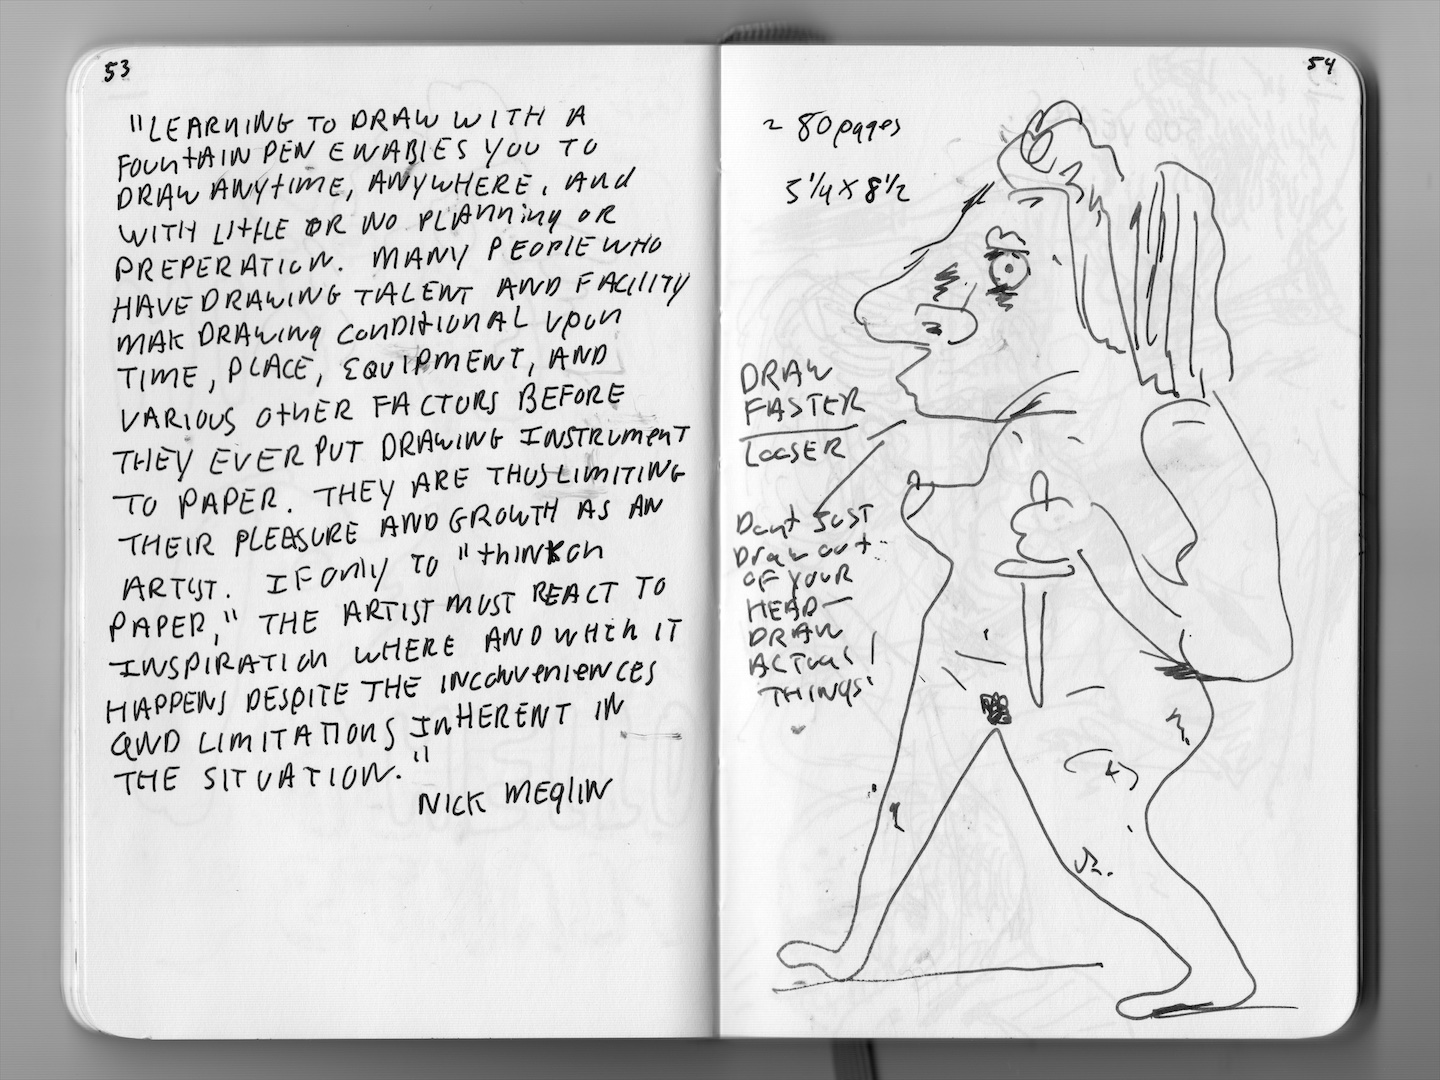 53
"LEARNING TO DRAW WITH A
FOUNTAIN PEN ENABLES YOU TO
DRAW ANYTIME, ANYWHERE, AND
WITH LITTLE OR NO PLANNING OR
PREPERATION. MANY PEOPLE WHO
HAVE DRAWING TALENT AND FACILITY
MAK DRAWING CONDITIONAL UPON
TIME, PLACE, EQUIPMENT, AND
VARIOUS OTHER FACTORS BEFORE
THEY EVER PUT DRAWING INSTRUMENT
TO PAPER. THEY ARE THUS LIMITING
THEIR PLEASURE AND GROWTH AS AN
ARTIST. IF ONLY TO "THINK ON
PAPER," THE ARTIST MUST REACT TO
INSPIRATION WHERE AND WHEN IT
HAPPENS DESPITE THE INCONVENIENCES
AND LIMITATIONS INHERENT IN
THE SITUATION."
NICK MEGLIN
54
~ 80 pages
5 1/4 X 8 1/2
DRAW
FASTER
LOOSER
DONT JUST
DRAW OUT
OF YOUR
HEAD—
DRAW
ACTUAL
THINGS!